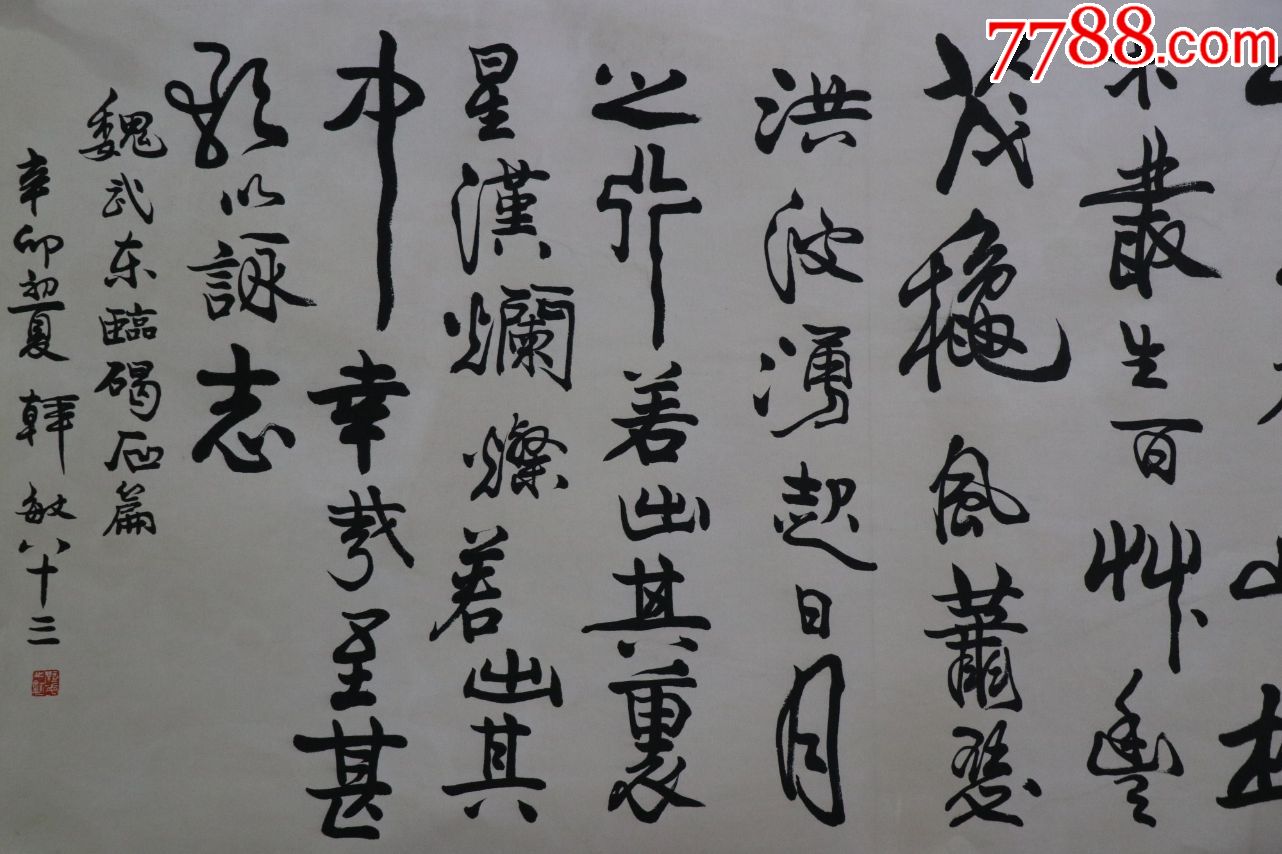 7788.com
木叢生百艸豐
茂穐風蕭瑟
洪波湧起日月
之行若出其裏
星漢爛燦若出其
中幸哉至甚
歌以詠志
魏武東臨碣石篇
辛卯初夏 韓敏八十三